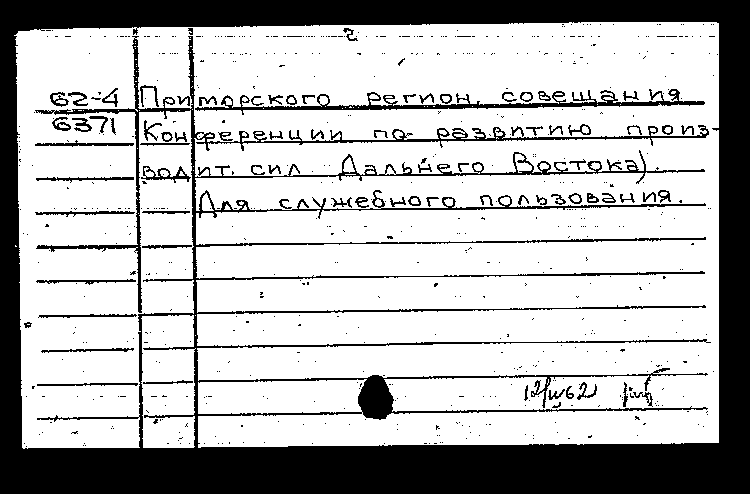 2
62-4 Приморского регион. совещания
6371 Конференции по развитию произ-
водит. сил Дальнего Востока).
Для служебного пользования.
12/IV 62